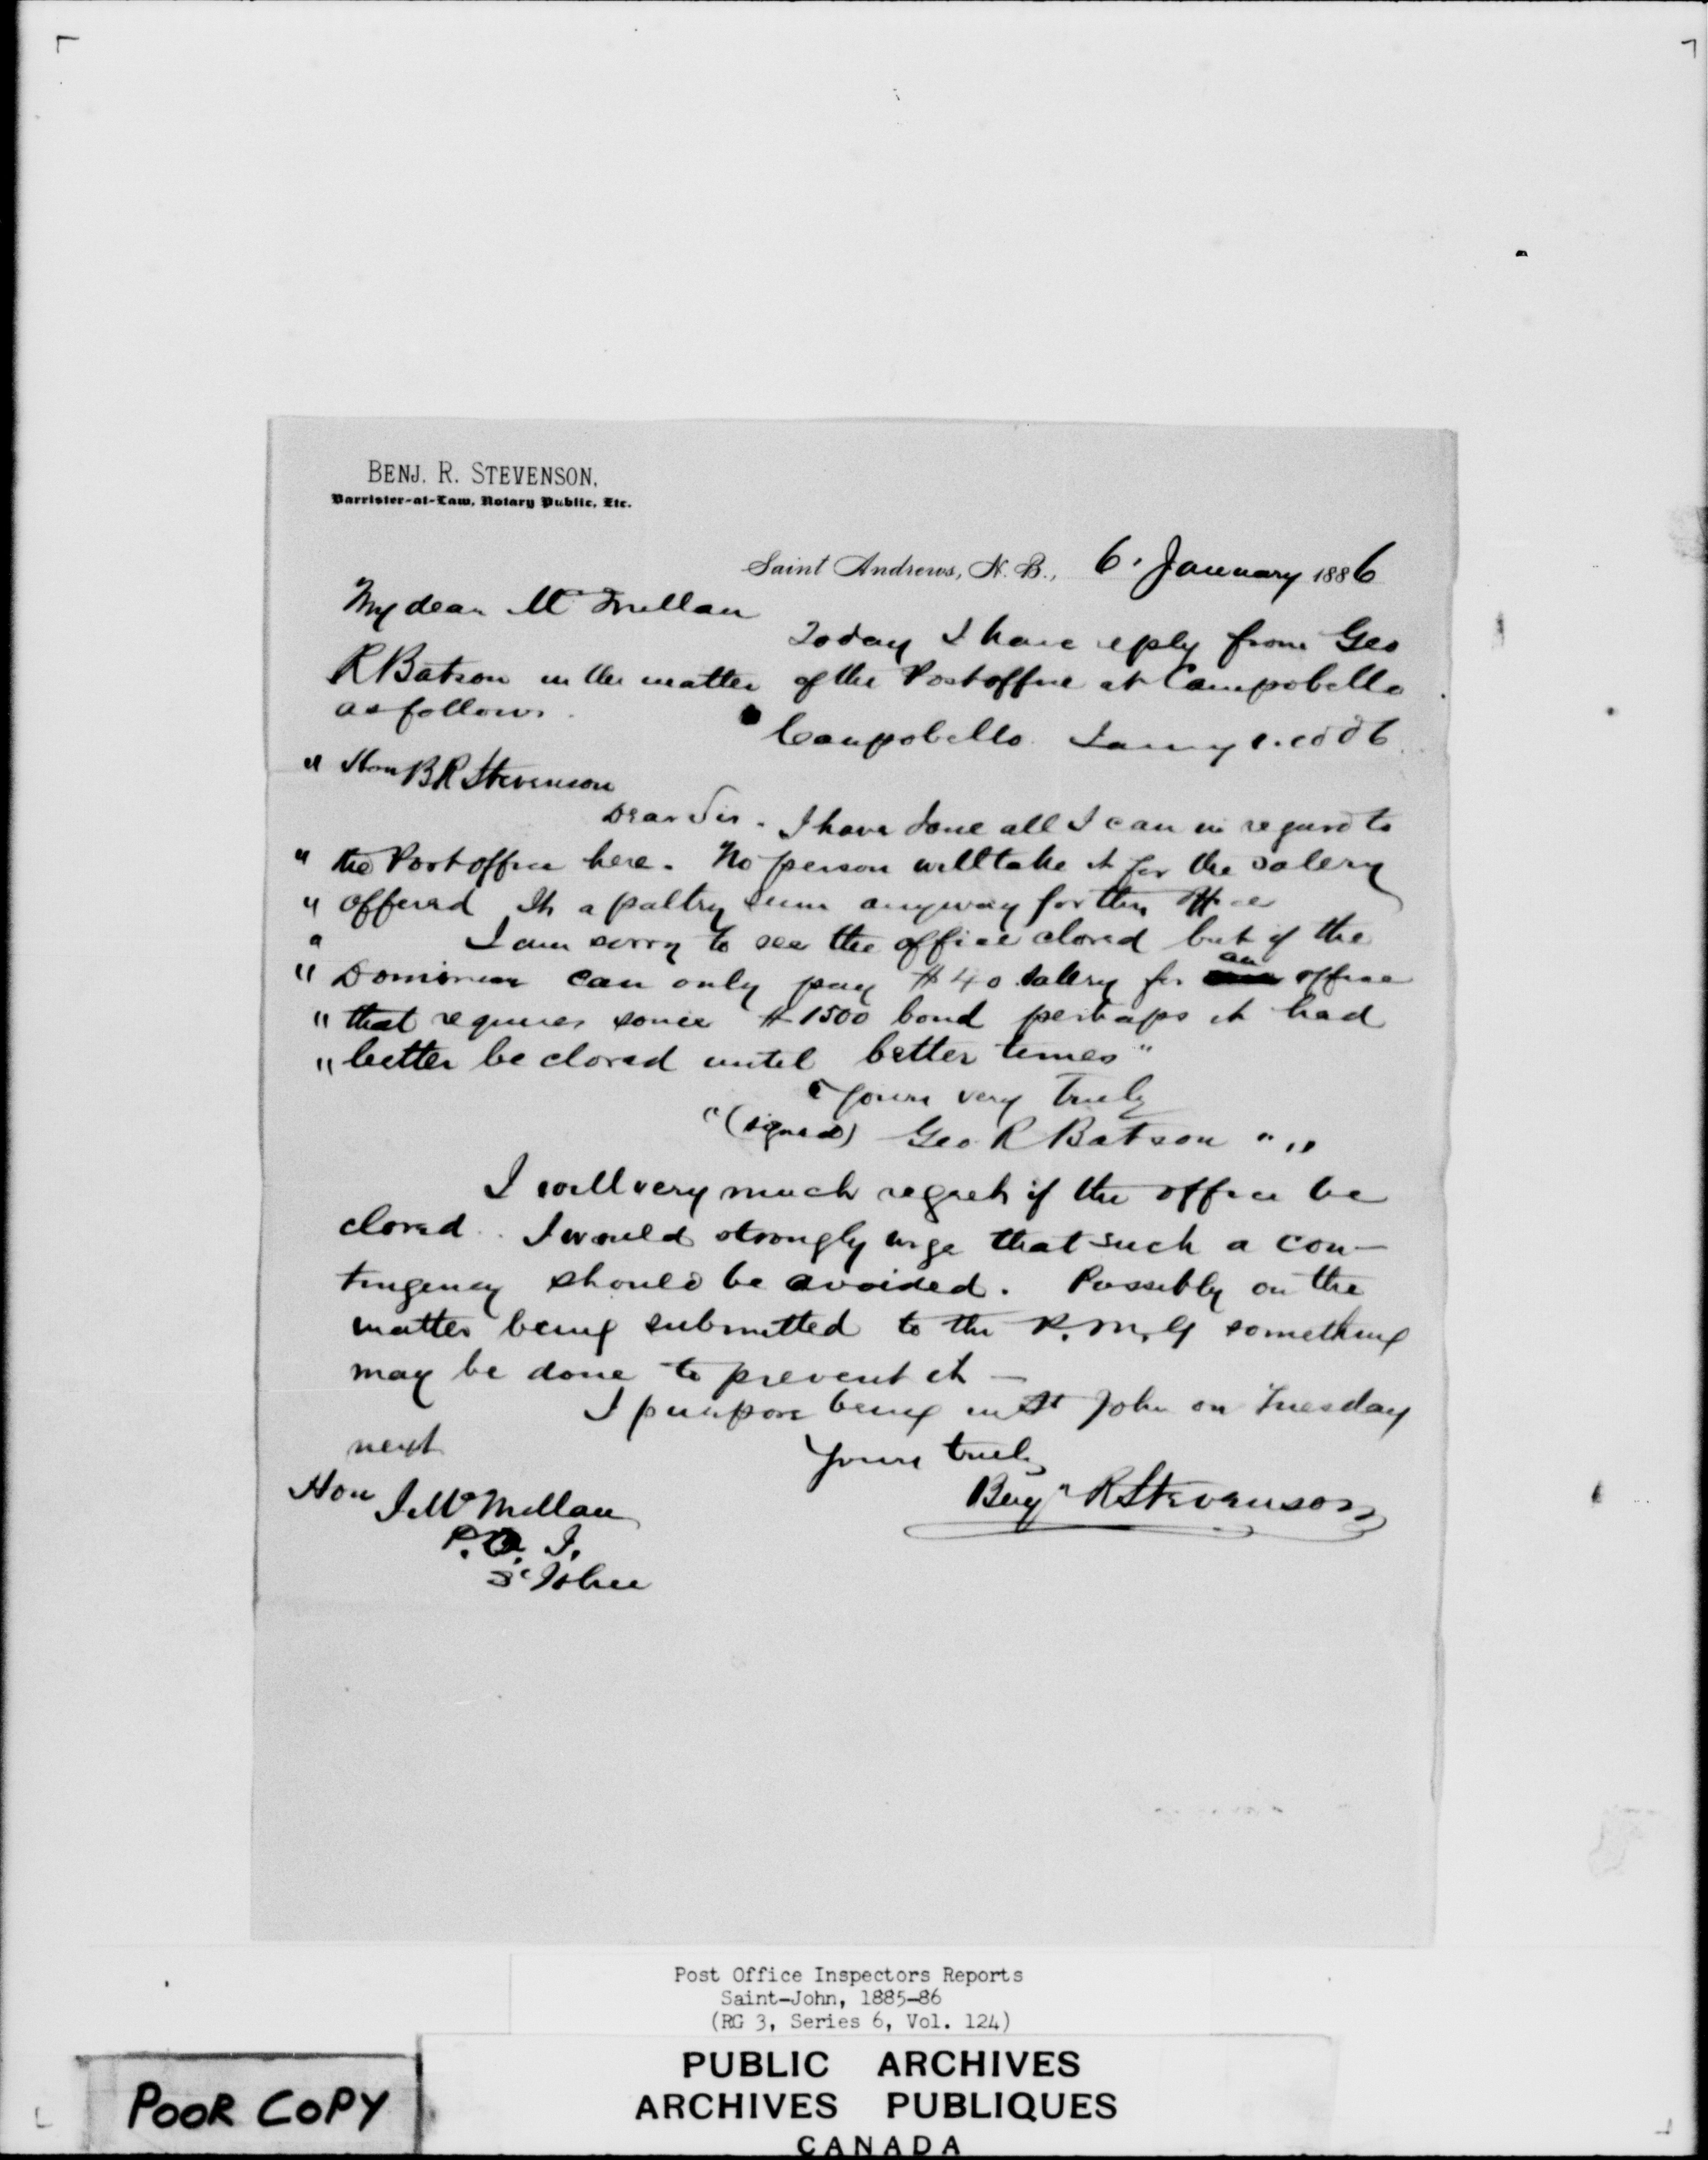 BENJ. R. STEVENSON,
Barrister-at-Law, Notary Public, Etc.
Saint Andrews, N. B., 6. January 1886
My dear McMillan
Today I have reply from Geo
R Batson in the matter of the Post office at Campobello
as follows.
Campobello. Jany 1886
" Hon B R Stevenson
Dear Sir. I have done all I can in regard to
" the Post office here. No person will take it for the salery
" offered Its a paltry sum anyway for this office
" I am sorry to see the office closed but if the
" Dominion can only pay $40 salery for an office
" that requires some $1500 bond perhaps it had
" better be closed until better times"
"Yours very truly
"(signed) Geo R Batson " "
I will very much regret if the office be
closed. I would strongly urge that such a con-
tingency should be avoided. Possibly on the
matter being submitted to the P.M.G something
may be done to prevent it —
I purpose being in St John on Tuesday
next
Yours truly
Benjn R Stevenson
Hon J McMillan
P.O. I.
St John
Post Office Inspectors Reports
Saint-John, 1885-86
(RG 3, Series 6, Vol. 124)
PUBLIC ARCHIVES
ARCHIVES PUBLIQUES
CANADA
POOR COPY